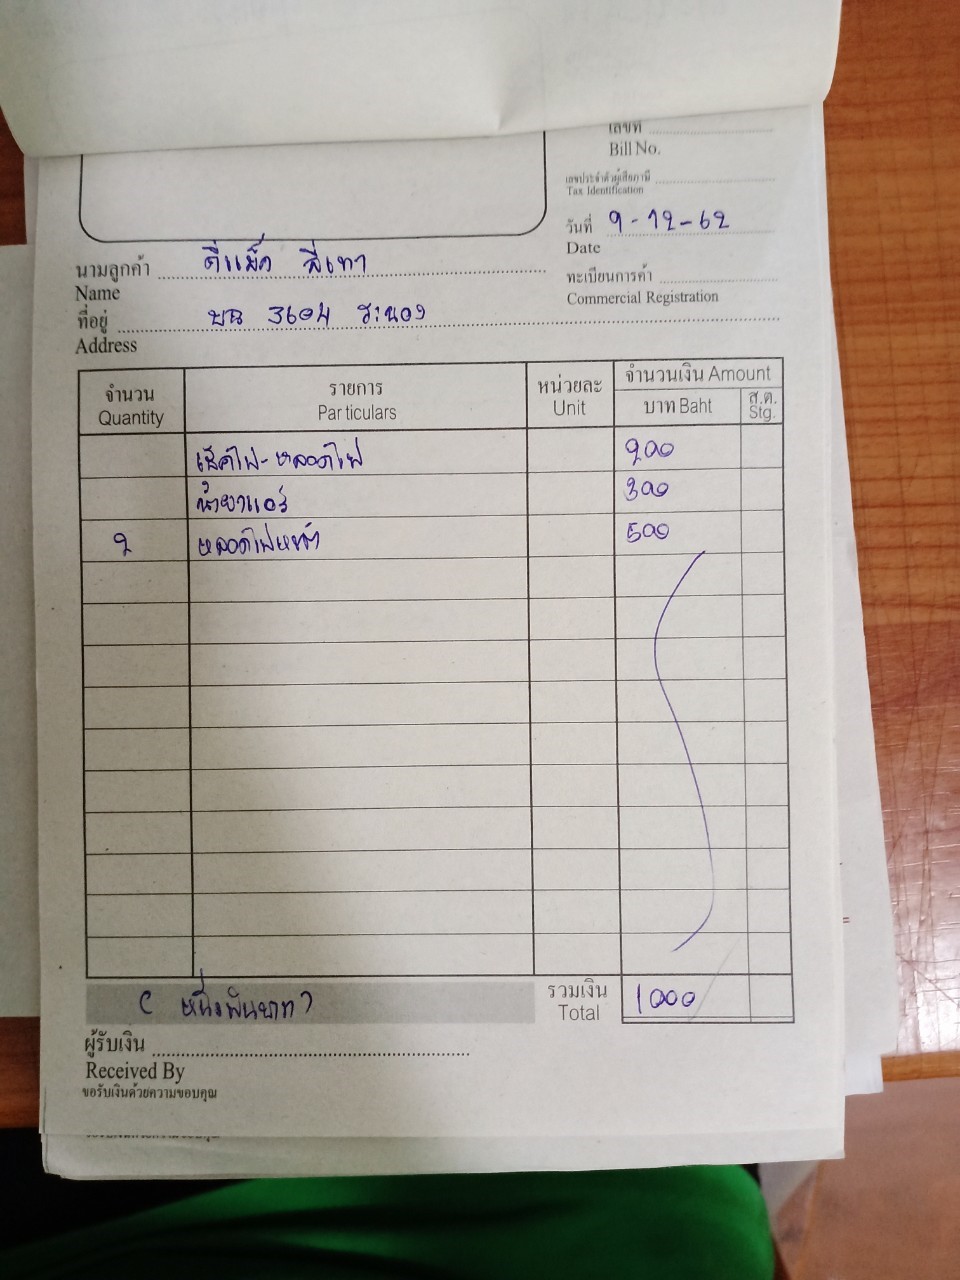 เลขที่
Bill No.
เลขประจำตัวผู้เสียภาษี
Tax Identification
วันที่ 9-12-62
Date
นามลูกค้า ดีแม็ค สีเทา
Name
ทะเบียนการค้า
Commercial Registration
ที่อยู่ บฉ 3604 ระนอง
Address
จำนวน รายการ หน่วยละ จำนวนเงิน Amount
Quantity Particulars Unit บาท Baht ส.ต. Stg.
เช็คไฟ-หลอดไฟ 200
น้ำยาแอร์ 300
2 หลอดไฟหน้า 500
( หนึ่งพันบาท ) รวมเงิน 1000
Total
ผู้รับเงิน
Received By
ขอรับเงินด้วยความขอบคุณ